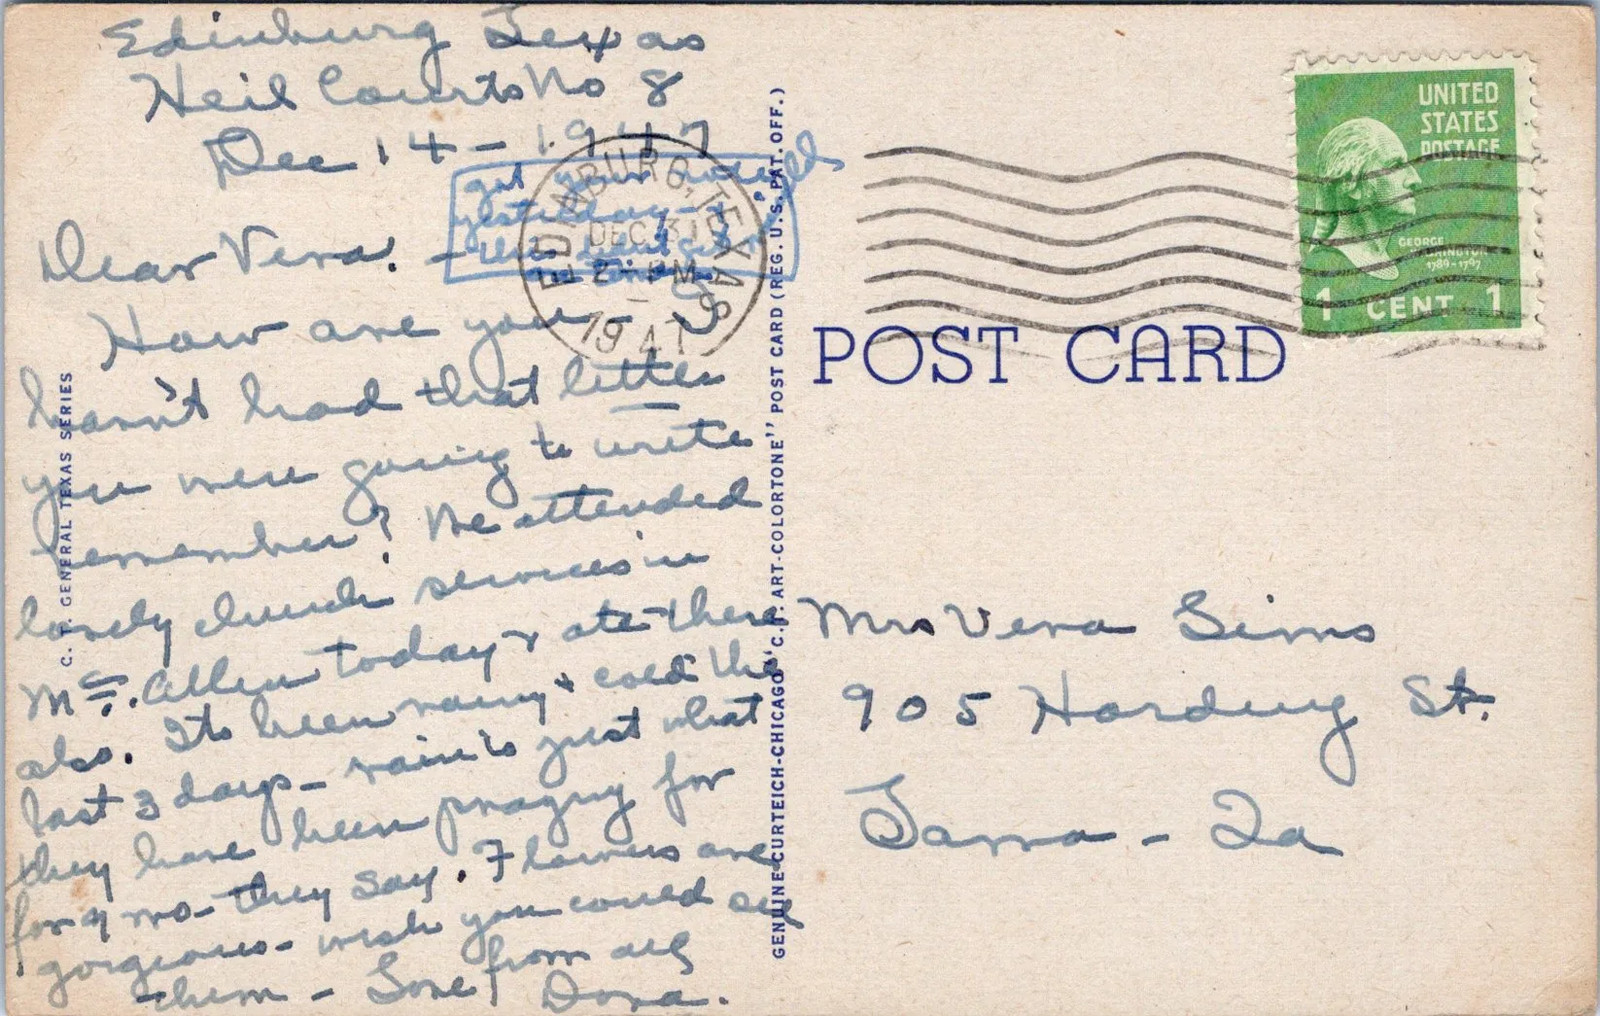 Edinburg Texas
Neil Courts No 8
Dec 14 - 1947
got your
yesterday -
Dear Vera. -
How are you -
havn't had that letter
you were going to write
remember? We attended
lovely church services in
Mc. Allen today & ate there
also. Its been rainy & cold the
last 3 days - rain is just what
they have been praying for
for 4 mo - they say. Flowers are
gorgeous - wish you could see
them - Love from all
Dora.
EDINBURG, TEXAS
DEC
2 - PM
1947
UNITED
STATES
POSTAGE
GEORGE
WASHINGTON
1789-1797
1 CENT 1
POST CARD
Mrs Vera Sims
905 Harding St.
Tama - Ia
C. T. GENERAL TEXAS SERIES
GENUINE CURTEICH-CHICAGO "C.T. ART-COLORTONE" POST CARD (REG. U.S. PAT. OFF.)